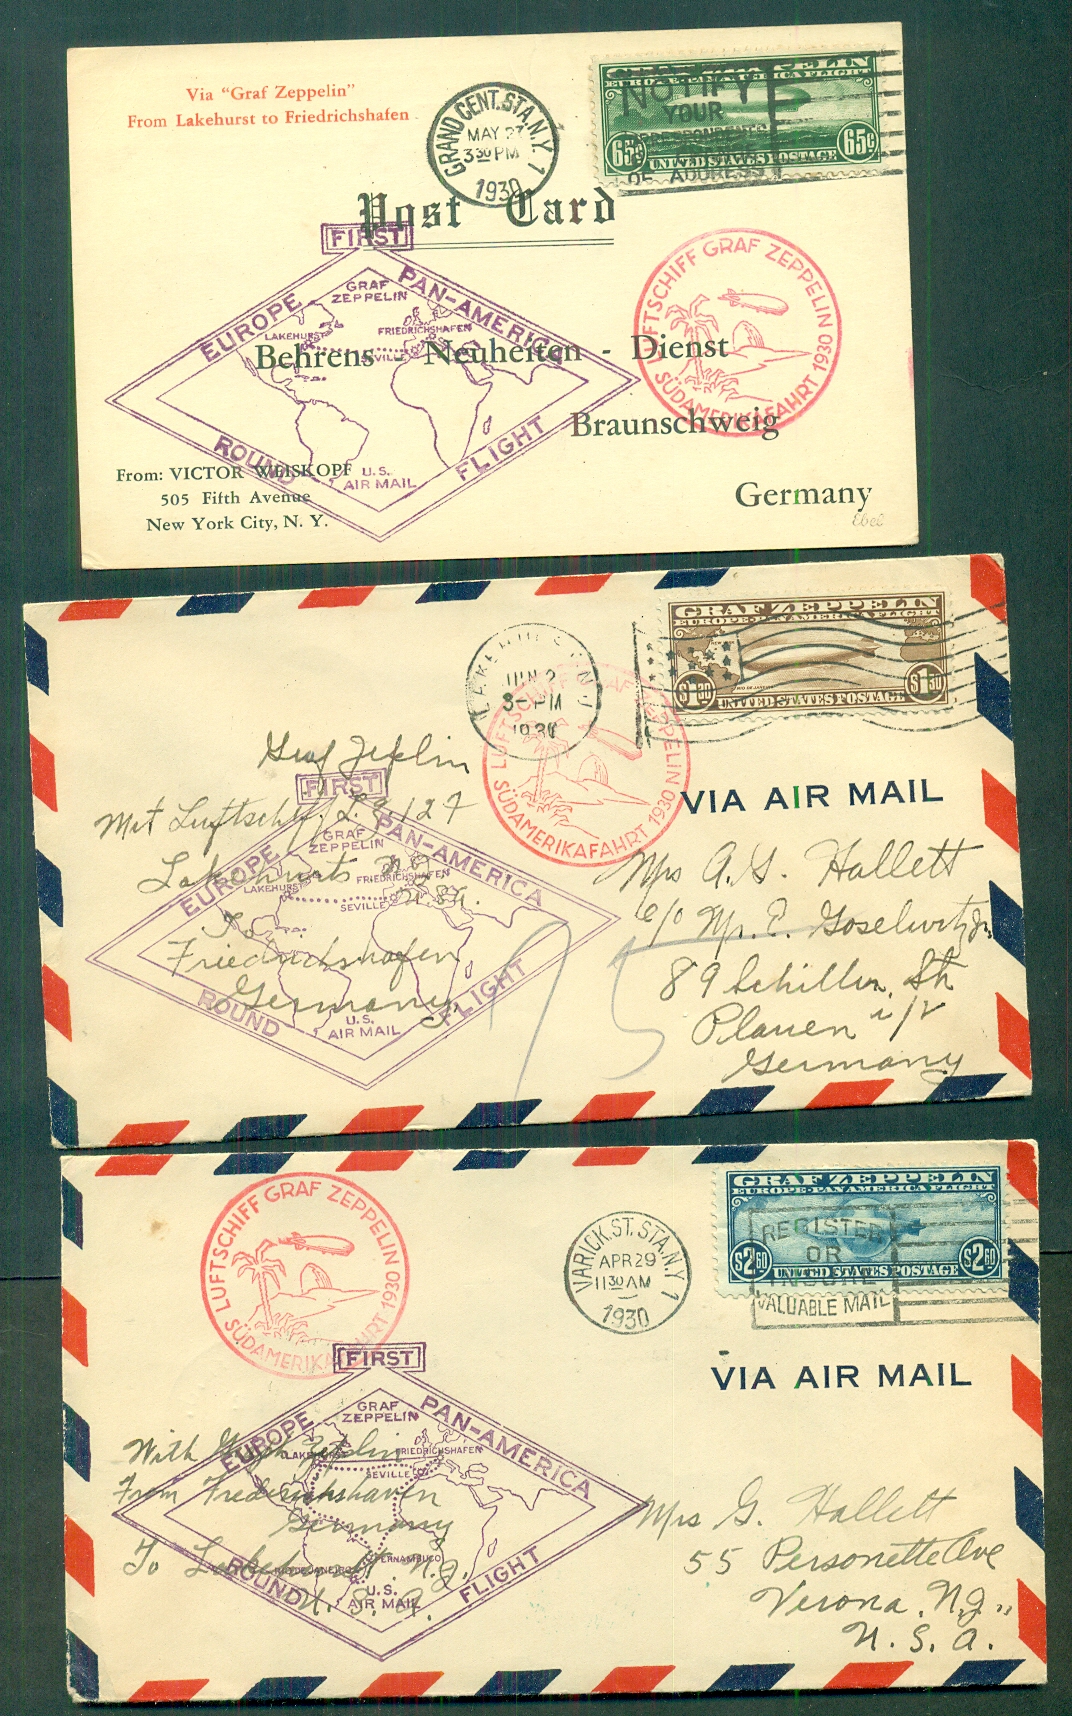 Via "Graf Zeppelin"
From Lakehurst to Friedrichshafen
GRAND CENT. STA. N.Y. 1
MAY 27
3 30 PM
1930
NOTIFY
YOUR
CORRESPONDENTS
OF ADDRESS
GRAF ZEPPELIN
EUROPE-PAN AMERICA FLIGHT
65¢ UNITED STATES POSTAGE 65¢
Post Card
FIRST
EUROPE PAN-AMERICA
ROUND FLIGHT
GRAF
ZEPPELIN
LAKEHURST
FRIEDRICHSHAFEN
SEVILLE
U.S.
AIR MAIL
LUFTSCHIFF GRAF ZEPPELIN
SÜDAMERIKAFAHRT 1930
Behrens - Neuheiten - Dienst
Braunschweig
Germany
Ebel
From: VICTOR WEISKOPF
505 Fifth Avenue
New York City, N. Y.
LAKEHURST N.J.
JUN 2
3-PM
1930
GRAF ZEPPELIN
EUROPE-PAN AMERICA FLIGHT
RIO DE JANEIRO
$1.30 UNITED STATES POSTAGE $1.30
LUFTSCHIFF GRAF ZEPPELIN
SÜDAMERIKAFAHRT 1930
VIA AIR MAIL
Graf Zeplin
Mit Luftschiff L.Z. 127
Lakehurts N.J.
U.S.A.
To
Friedrichshafen
Germany
FIRST
EUROPE PAN-AMERICA
ROUND FLIGHT
GRAF
ZEPPELIN
LAKEHURST
FRIEDRICHSHAFEN
SEVILLE
U.S.
AIR MAIL
75
Mrs A. G. Hallett
c/o Mr. E.
89 Schiller Str
Plauen i/V
Germany
LUFTSCHIFF GRAF ZEPPELIN
SÜDAMERIKAFAHRT 1930
VARICK ST. STA. N.Y. 1
APR 29
11 30 AM
1930
REGISTER
OR
INSURE
VALUABLE MAIL
GRAF ZEPPELIN
EUROPE-PAN AMERICA FLIGHT
$2.60 UNITED STATES POSTAGE $2.60
VIA AIR MAIL
FIRST
EUROPE PAN-AMERICA
ROUND FLIGHT
GRAF
ZEPPELIN
LAKEHURST
FRIEDRICHSHAFEN
SEVILLE
PERNAMBUCO
RIO DE JANEIRO
U.S.
AIR MAIL
With Graph Zeplin
From Frederickshaven
Germany
To Lakehurst. N.J.
U. S. A.
Mrs G. Hallett
55 Personette Ave
Verona. N.J.,,
U. S. A.